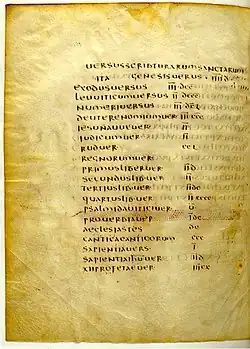 UERSUS SCRIPTURARUM SANCTARUM
ITA GENESIS UERSUS IIIID
EXODUS UERSUS IIIDCC
LEUITICUM UERSUS IIDCCC
NUMERI UERSUS IIIDCL
DEUTERENOMIUM UER IIICCC
IESU NAUUE UER II
IUDICUM UER II
RUD UER CCL
REGNORUM UER
PRIMUS LIBER UER IID
SECUNDUS LIB UER II
TERTIUS LIB UER IIDC
QUARTUS LIB UER IICCCC
PSALMI DAUITICI UER U
PROUERBIA UER IDC
AECLESIASTES DC
CANTICA CANTICORUM CCC
SAPIENTIA UERS I
SAPIENTIA IHU UER IID
XII PROFETAE UER IIICX